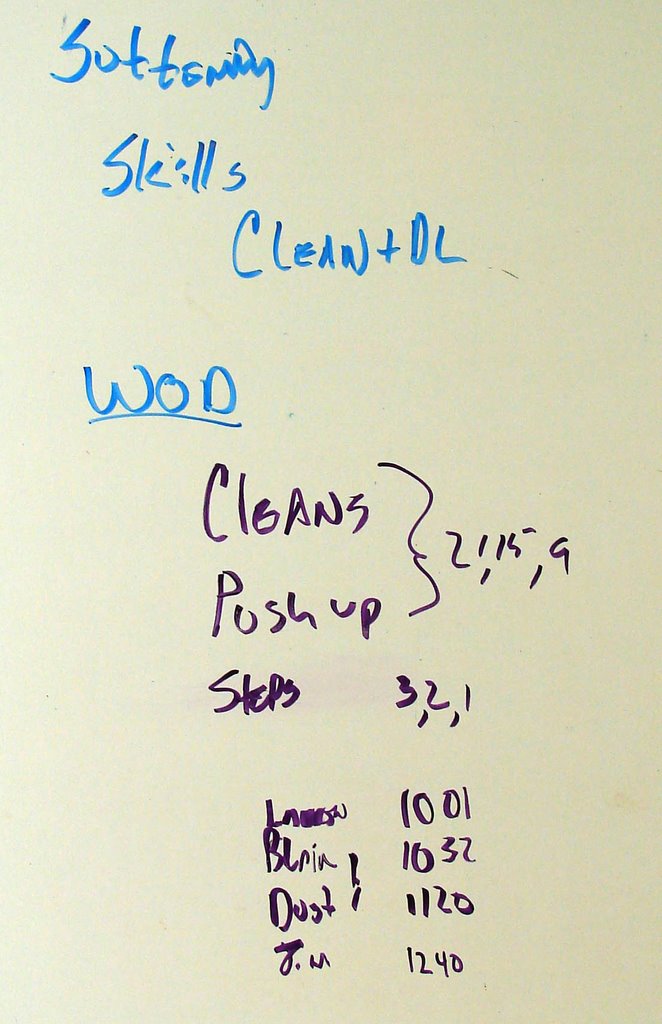 Skills
CLEAN + DL
WOD
CLEANS
Push up } 21, 15, 9
Steps 3, 2, 1
1001
Blain 1032
Dust 1120
Jim 1240